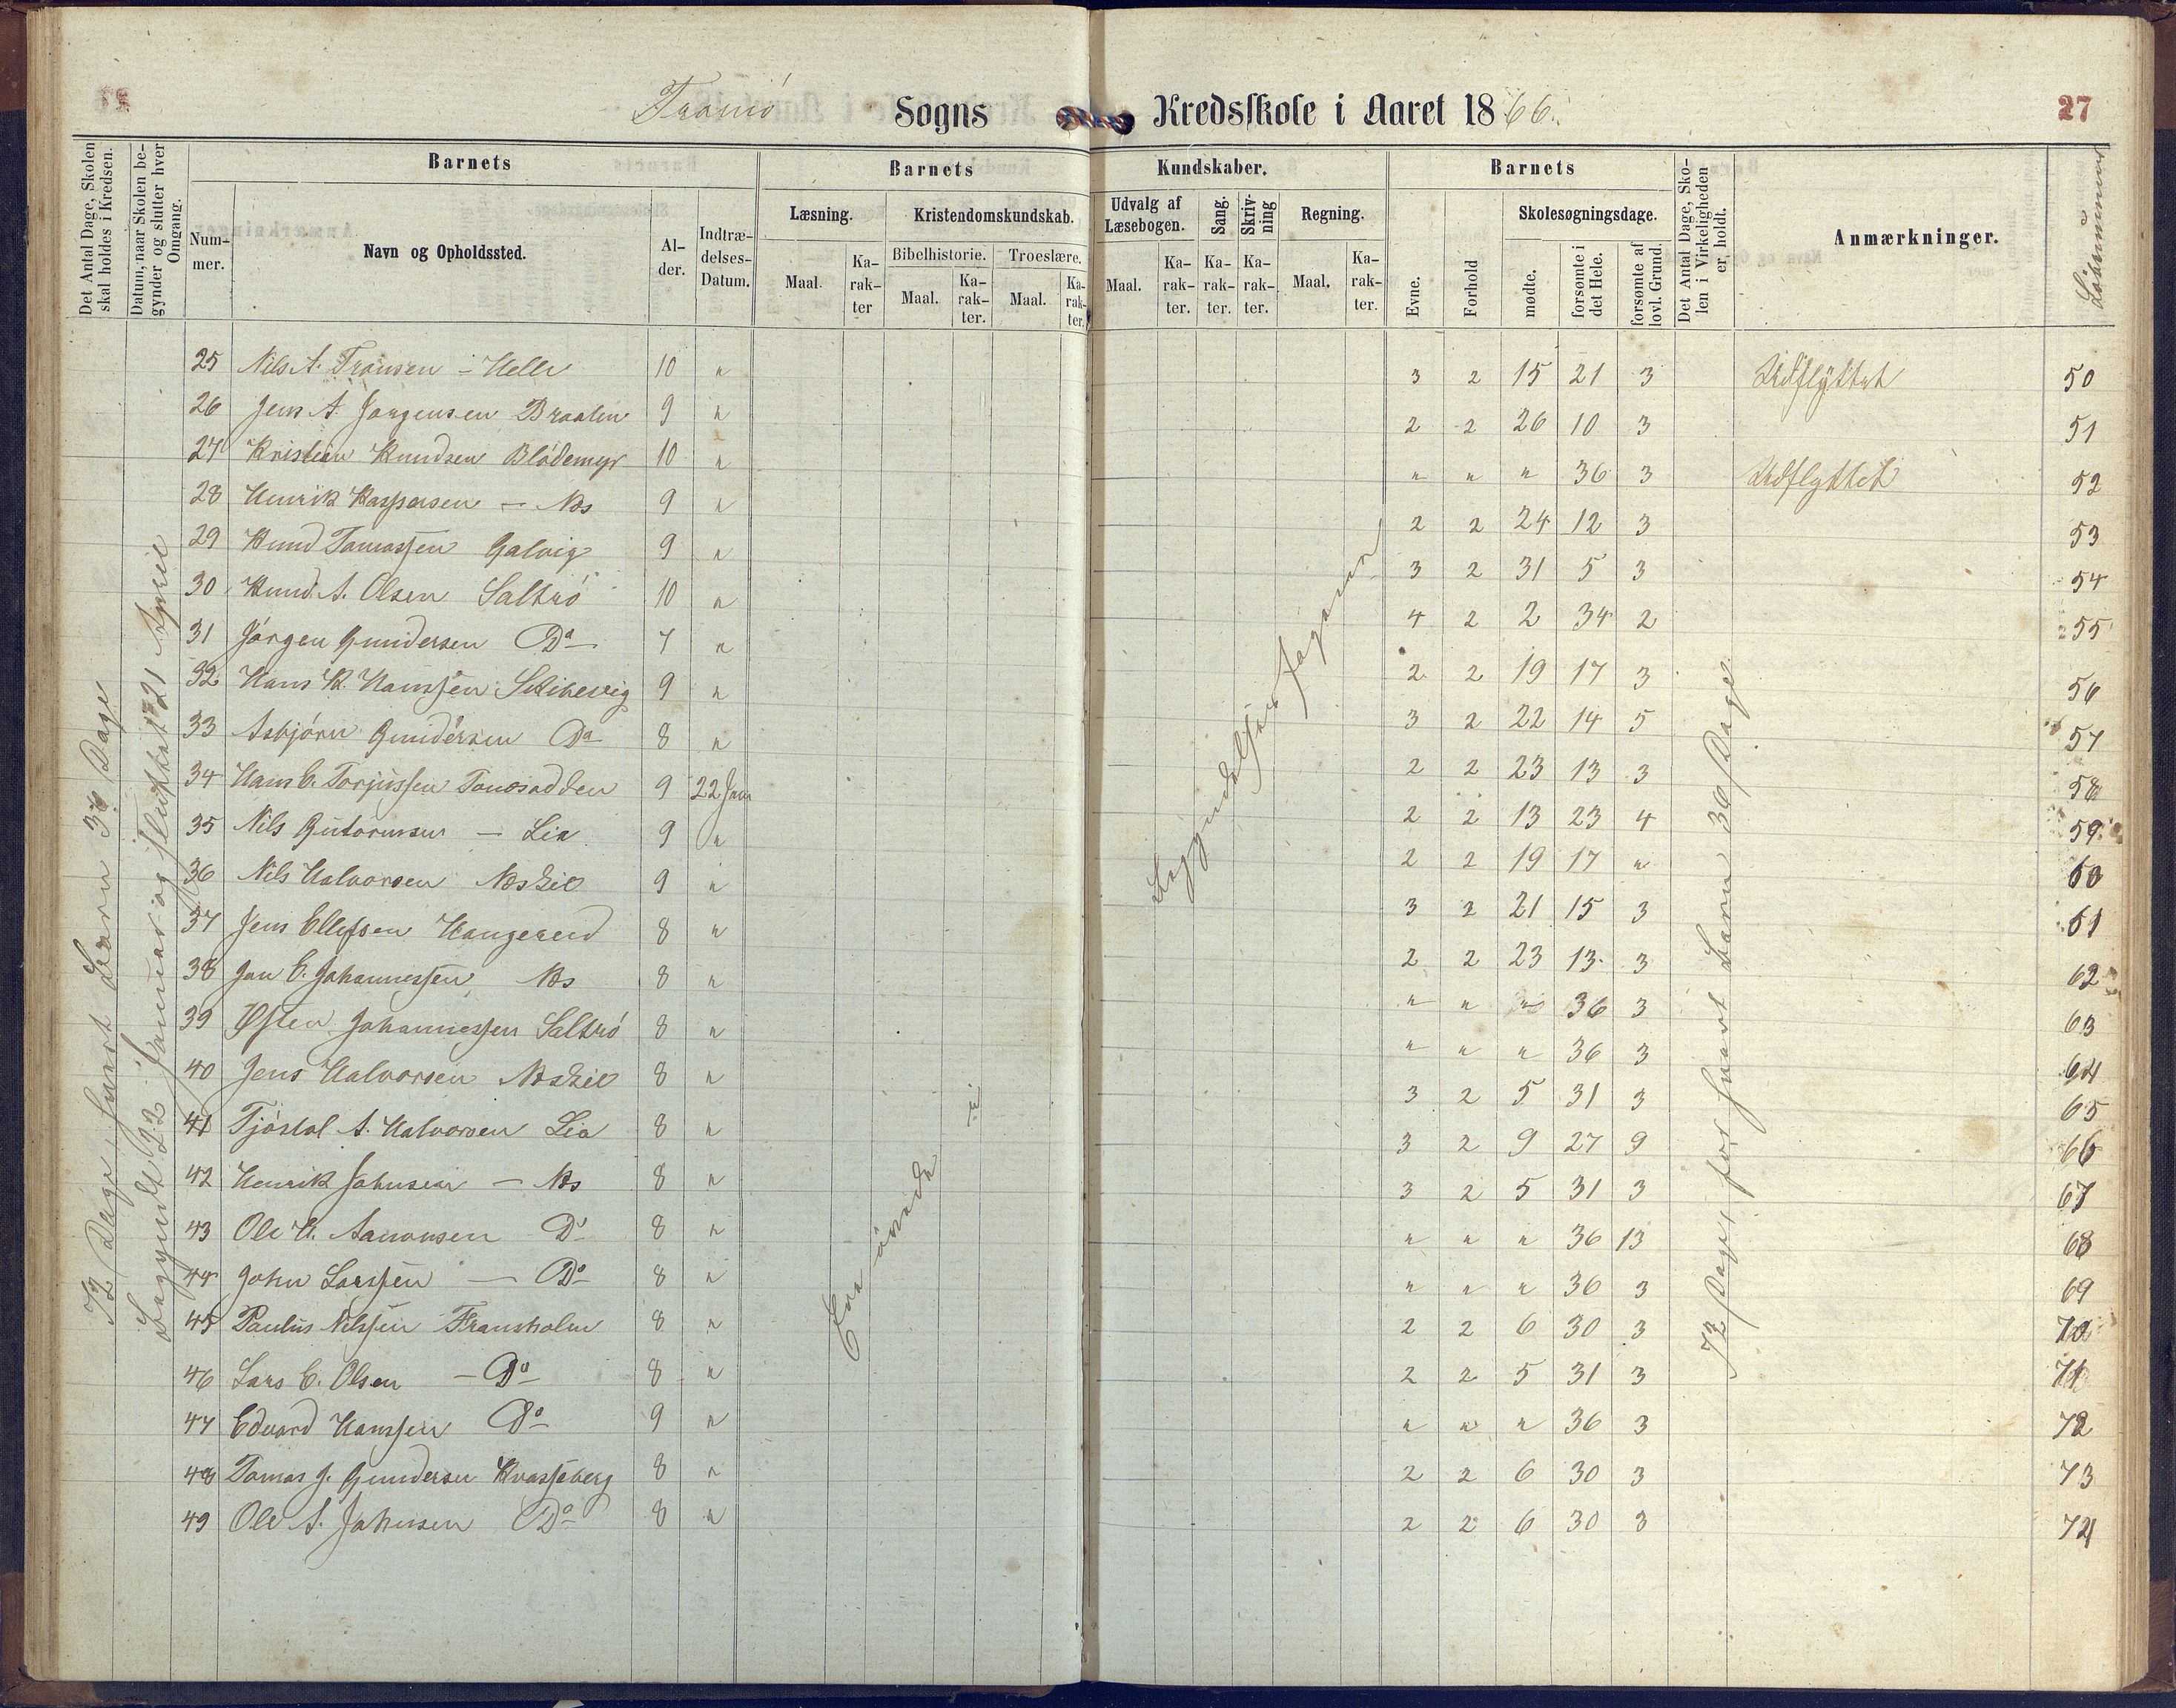 Tromö Sogns Kredsskole i Aaret 1866.
27
Det Antal Dage, Skolen skal holdes i Kredsen.
Datum, naar Skolen begynder og slutter hver Omgang.
Barnets
Nummer.
Navn og Opholdssted.
Alder.
Indtrædelses-Datum.
Barnets Kundskaber.
Læsning.
Maal.
Karakter
Kristendomskundskab.
Bibelhistorie.
Maal.
Karakter.
Troeslære.
Maal.
Karakter.
Udvalg af Læsebogen.
Maal.
Karakter.
Sang.
Karakter.
Skrivning
Karakter.
Regning.
Maal.
Karakter.
Barnets
Evne.
Forhold
Skolesøgningsdage.
mødte.
forsømte i det Hele.
forsømte af lovl. Grund.
Det Antal Dage, Skolen i Virkeligheden er holdt.
Anmærkninger.
Löbenummer
72 Dage, hvert Barn 36 Dage
Begyndt 22 Januar og sluttet 21 April
25 Nils A. Transen – Helle 10 " 3 2 15 21 3 Udflyttet 50
26 Jens A. Jörgensen Braaten 9 " 2 2 26 10 3 51
27 Kristian Knudsen Blödemyr 10 " " " " 36 3 Udflyttet 52
28 Henrik Kaspersen – Næs 9 " 2 2 24 12 3 53
29 Knud Tomassen Galvig 9 " 3 2 31 5 3 54
30 Knud A. Olsen Saltrö 10 " 4 2 2 34 2 55
31 Jörgen Gundersen Do 7 " 2 2 19 17 3 56
32 Hans K. Hanssen Skibevig 9 " 3 2 22 14 5 57
33 Asbjörn Gundersen Do 8 " 2 2 23 13 3 58
34 Hans C. Torjussen 9 22 Jan 2 2 13 23 4 59
35 Nils Gutormsen – Lia 9 " 2 2 19 17 " 60
36 Nils Halvorsen Næskil 9 " 3 2 21 15 3 61
37 Jens Ellefsen Hangereid 8 " 2 2 23 13 3 62
38 Jan C. Johannessen Næs 8 " " " " 36 3 63
39 Østen Johannessen Saltrö 8 " " " " 36 3 64
40 Jens Halvorsen Næskil 8 " 3 2 5 31 3 65
41 Tjöstol A. Halvorsen Lia 8 " 3 2 9 27 9 66
42 Henrik Johnsen – Næs 8 " 3 2 5 31 3 67
43 Ole H. Aanonsen Do 8 " " " " 36 13 68
44 John Larssen — Do 8 " " " " 36 3 69
45 Paulus Nilssen Fransholm 8 " 2 2 6 30 3 70
46 Lars C. Olsen – Do 8 " 2 2 5 31 3 71
47 Edvard Hanssen Do 9 " " " " 36 3 72
48 Tomas J. Gundersen Kvasseberg 8 " 2 2 6 30 3 73
49 Ole A. Johnsen Do 8 " 2 2 6 30 3 74
72 Dage, for hvert Barn 36 Dage